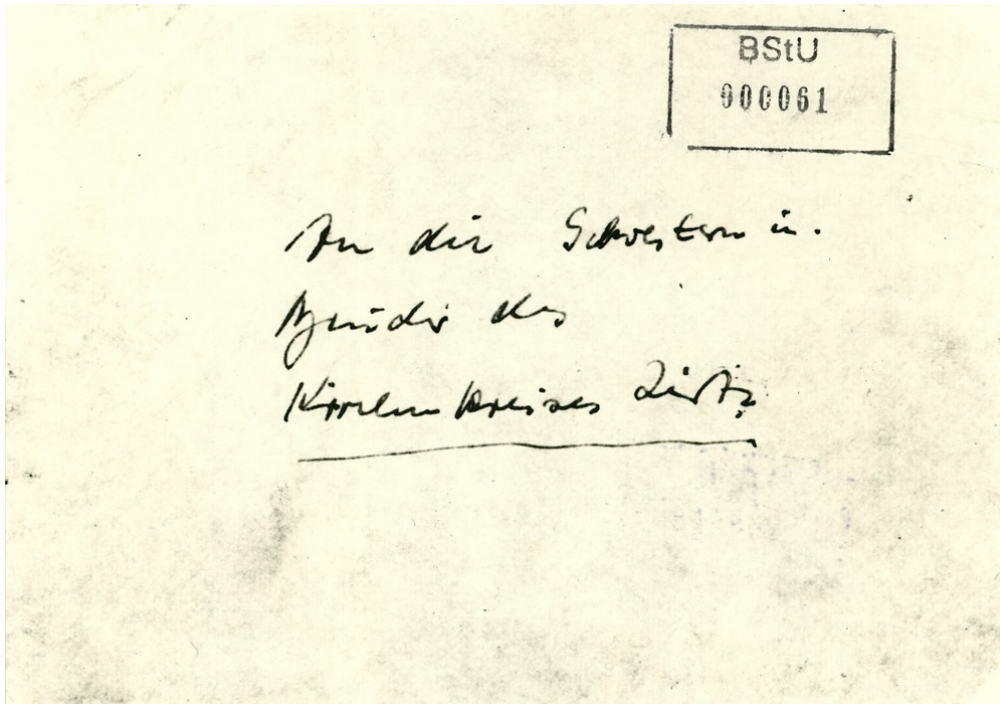 BStU
000061
An die Schwestern u.
Brüder des
Kirchenkreises Zeitz